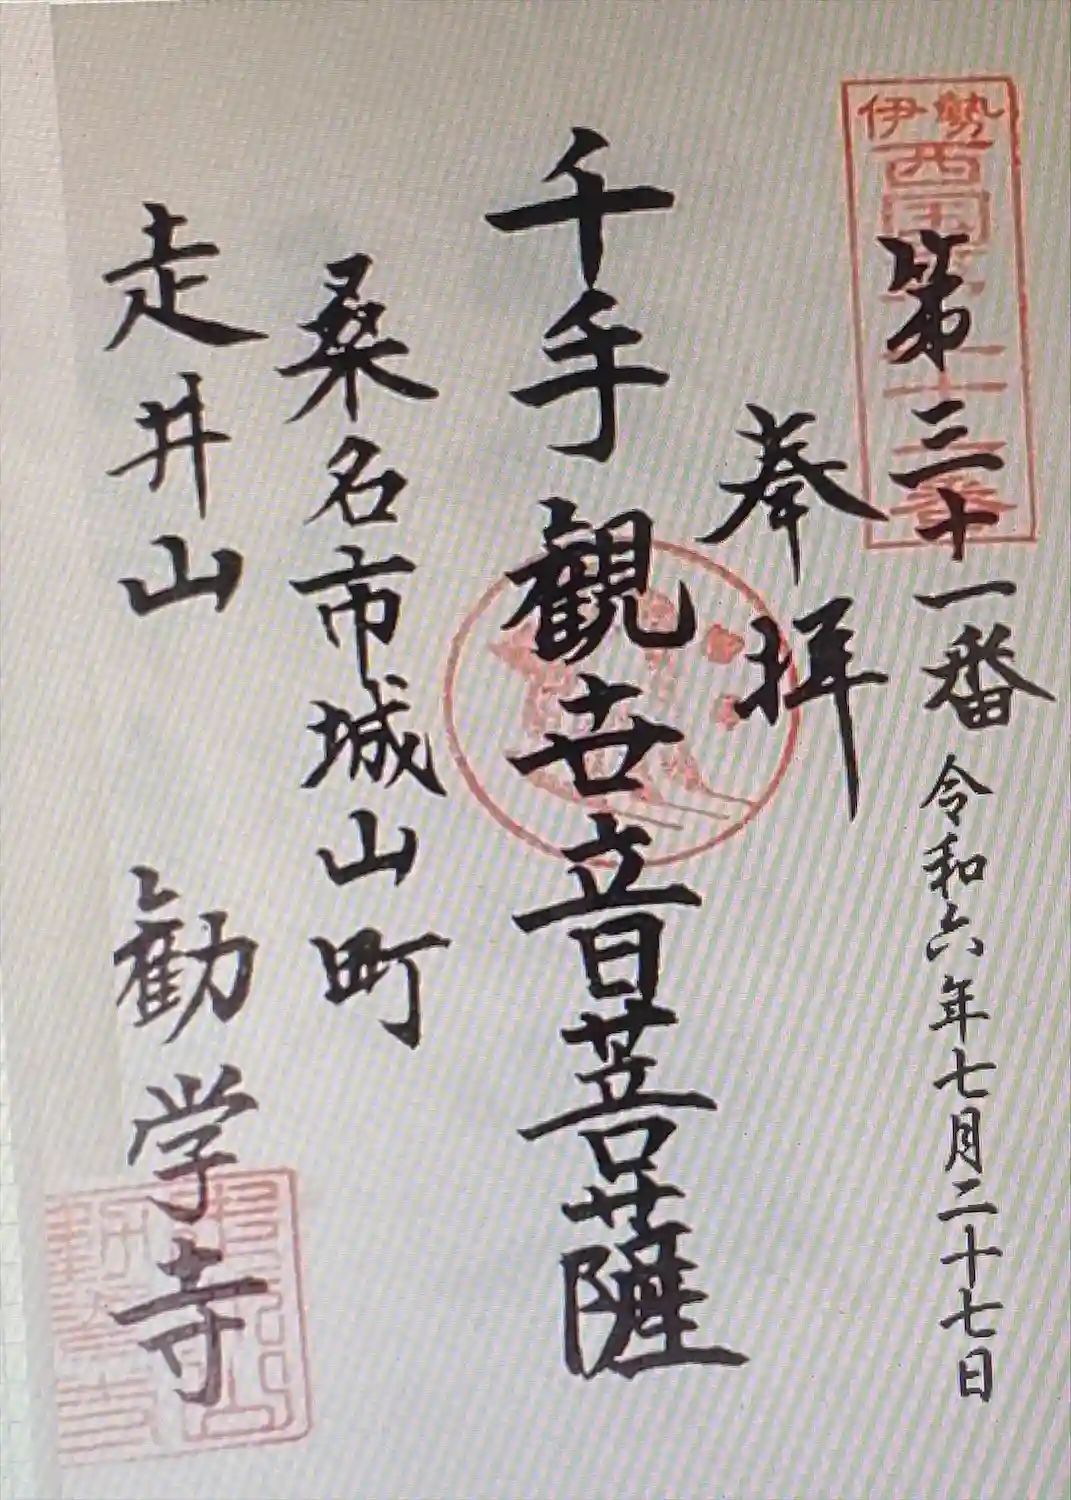 伊勢
西国
第三十一番 令和六年七月二十七日
奉拝
千手観世音菩薩
桑名市城山町
走井山 勧学寺